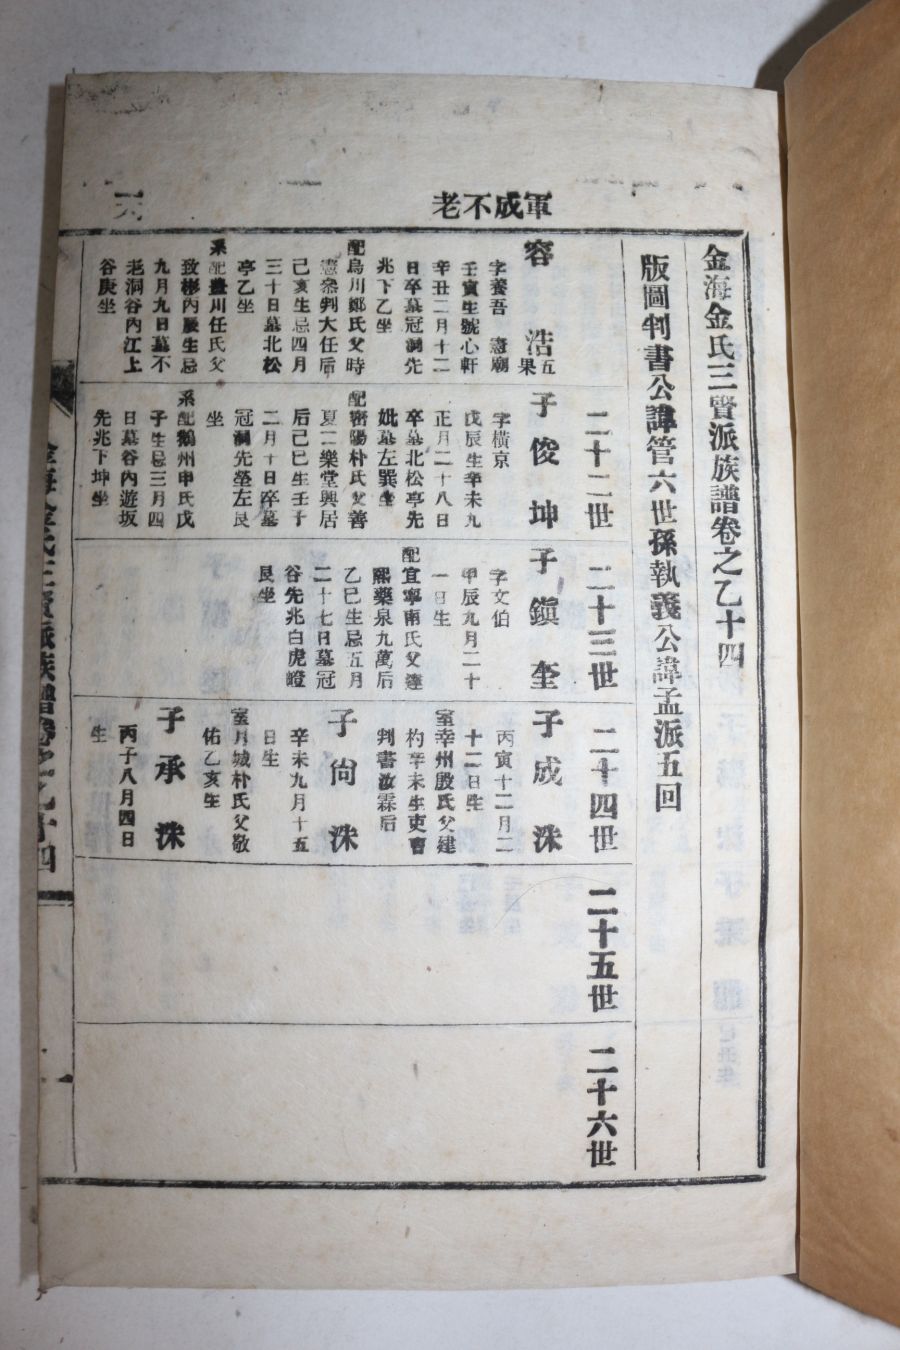 老不成軍
天
金海金氏三賢派族譜卷之乙十四
版圖判書公諱管六世孫執義公諱孟派五回
容浩
五果
字養吾 憲廟
壬寅生號心軒
辛丑二月十二
日卒墓冠洞先
兆下乙坐
配烏川鄭氏父時
憲參判大任后
己亥生忌四月
三十日墓北松
亭乙坐
系配豊川任氏父
致彬丙辰生忌
九月九日墓不
老洞谷內江上
谷庚坐
二十二世
子俊坤
字橫京
戊辰生辛未九
正月二十八日
卒墓北松亭先
妣墓左巽坐
配密陽朴氏父善
夏一樂堂興居
后己巳生壬子
二月十日卒墓
冠洞先塋左艮
坐
系配鵝州申氏戊
子生忌三月四
日墓谷內遊坂
先兆下坤坐
二十三世
子鎭奎
字文伯
甲辰九月二十
一日生
配宜寧南氏父達
熙藥泉九萬后
乙巳生忌五月
二十七日墓冠
谷先兆白虎嶝
艮坐
二十四世
子成洙
丙寅十二月二
十二日生
室幸州殷氏父建
杓辛未生吏曹
判書汝霖后
子尙洙
辛未九月十五
日生
室月城朴氏父敬
佑乙亥生
子承洙
丙子八月四日
生
二十五世
二十六世
金海金氏三賢派族譜卷之乙十四
一